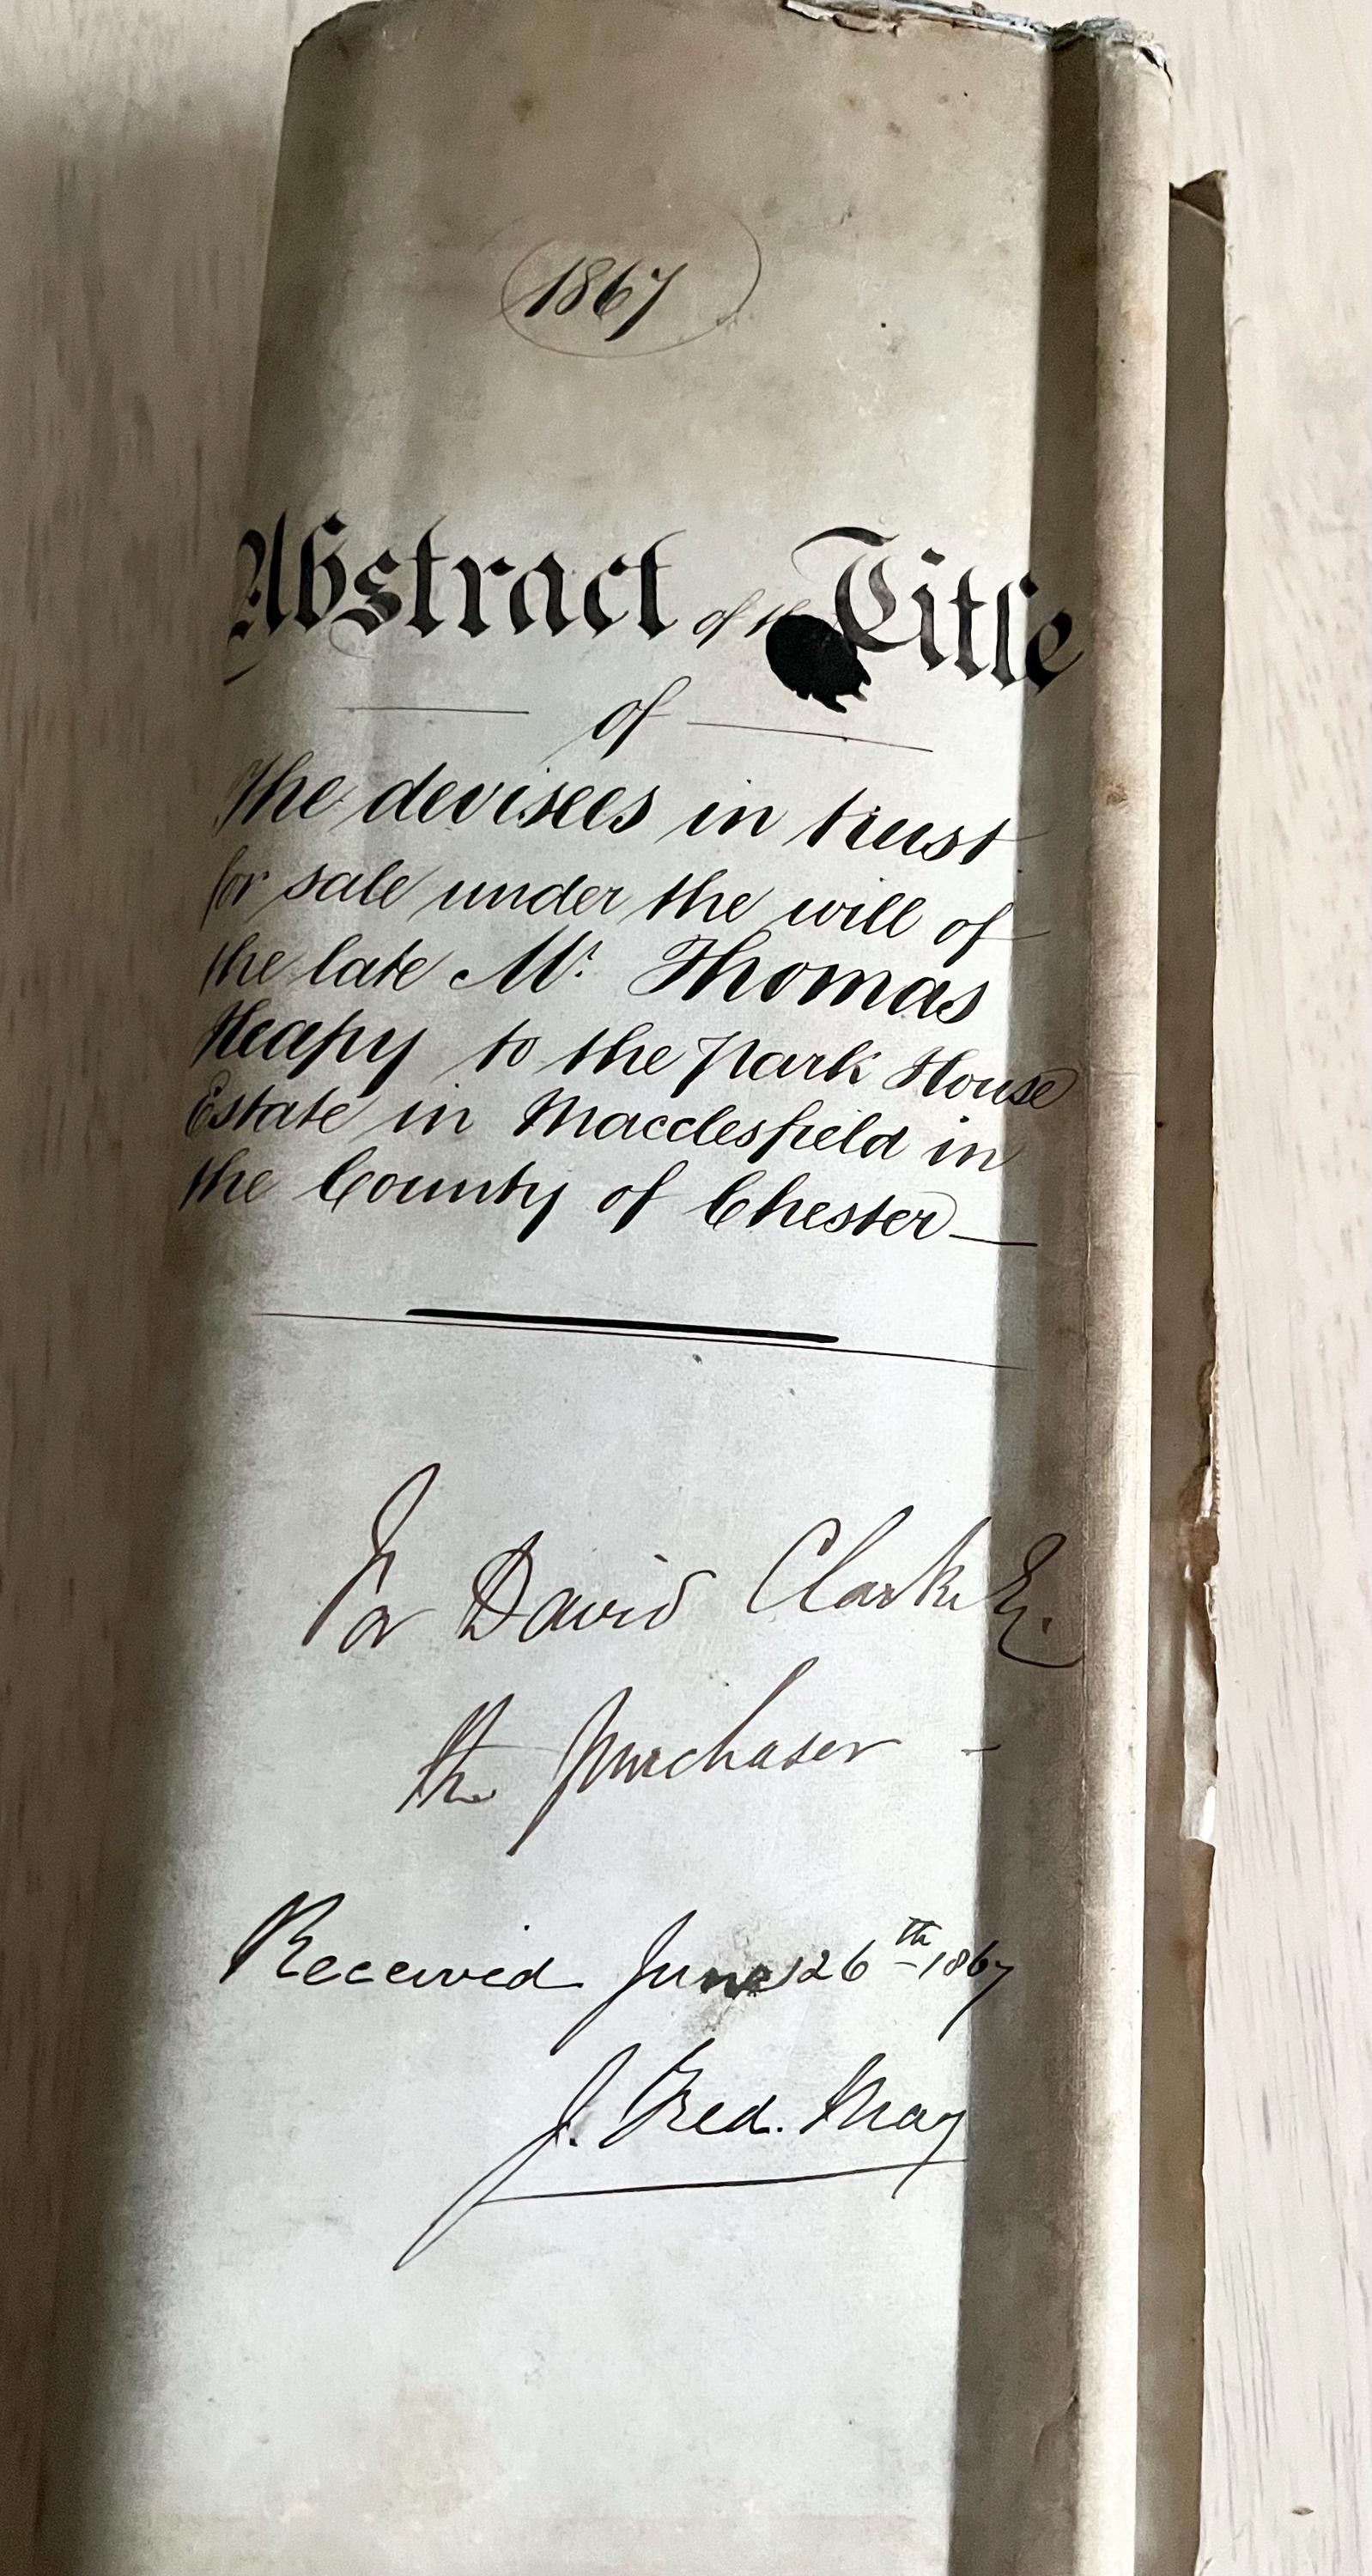 1867
Abstract of the Title
of
The devisees in trust
for sale under the will of
the late Mr. Thomas
Heapy to the Park House
Estate in Macclesfield in
the County of Chester
For David Clarke Esq.
the purchaser -
Received June 26th 1867
J. Fred. May